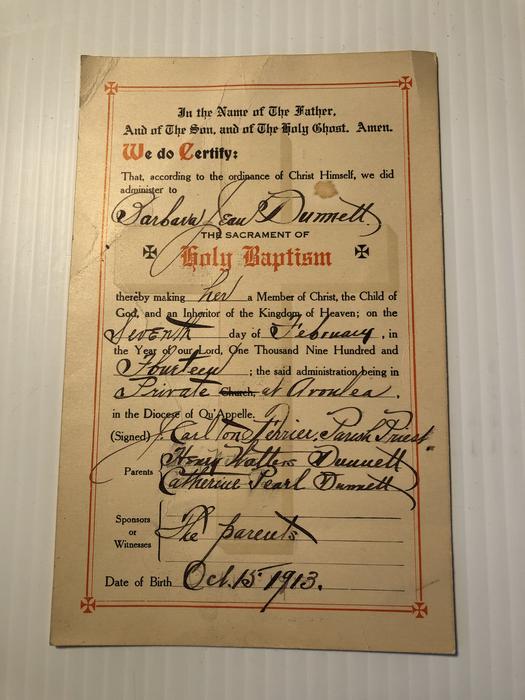 In the Name of The Father,
And of The Son, and of The Holy Ghost. Amen.
We do Certify:
That, according to the ordinance of Christ Himself, we did
administer to
Barbara Jean Dunnett
THE SACRAMENT OF
Holy Baptism
thereby making her a Member of Christ, the Child of
God, and an Inheritor of the Kingdom of Heaven; on the
Seventh day of February, in
the Year of our Lord, One Thousand Nine Hundred and
Fourteen; the said administration being in
Private Church, at Avonlea,
in the Diocese of Qu'Appelle.
(Signed) J. Carlton Ferrier, Parish Priest
Parents Henry Walters Dunnett
Catherine Pearl Dunnett
Sponsors or Witnesses The parents
Date of Birth Oct. 15 1913.